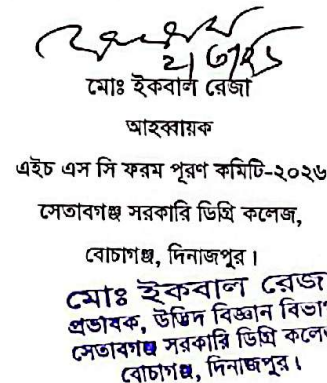 মোঃ ইকবাল রেজা
আহব্বায়ক
এইচ এস সি ফরম পূরণ কমিটি-২০২৬
সেতাবগঞ্জ সরকারি ডিগ্রি কলেজ,
বোচাগঞ্জ, দিনাজপুর।
মোঃ ইকবাল রেজ
প্রভাষক, উদ্ভিদ বিজ্ঞান বিভা
সেতাবগঞ্জ সরকারি ডিগ্রি কলে
বোচাগঞ্জ, দিনাজপুর।